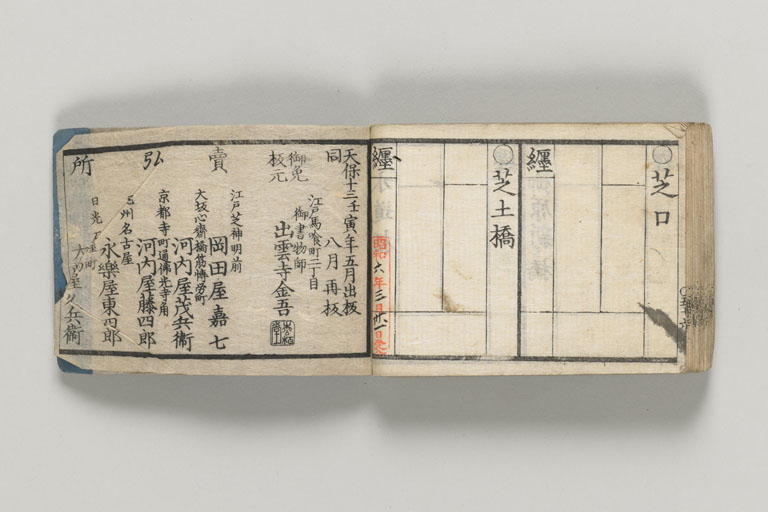 芝口
纏
芝土橋
纏
昭和六年三月廿一日
天保十三壬寅年五月出板
同 八月再板
江戸馬喰町二丁目
御書物師
御免
板元
出雲寺金吾
江戸芝神明前
岡田屋嘉七
賣
大坂心斎橋筋博労町
河内屋茂兵衞
京都寺町通佛光寺角
河内屋藤四郎
弘
尾州名古屋
永樂屋東四郎
日光
所